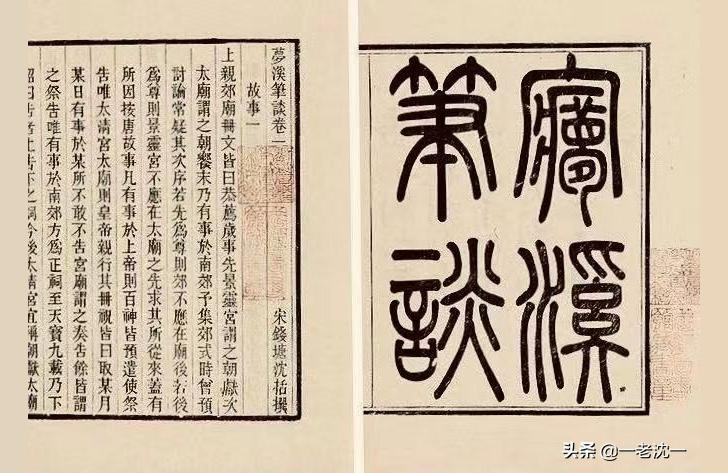 夢溪
筆談
夢溪筆談卷一
宋錢塘沈括撰
故事一
上親郊廟冊文皆曰恭薦歲事先景靈宮謂之朝獻次
太廟謂之朝饗末乃有事於南郊予集郊式時曾預
討論常疑其次序若先爲尊則郊不應在廟後若後
爲尊則景靈宮不應在太廟之先求其所從來蓋有
所因按唐故事凡有事於上帝則百神皆預遣使祭
告唯太清宮太廟則皇帝親行其冊祝皆曰取某月
某日有事於某所不敢不告宮廟謂之奏告餘皆謂
之祭告唯有事於南郊方爲正祠至天寶九載乃下
詔曰告者上告下之詞今後太清宮宜稱朝獻太廟
头条 @一老沈一